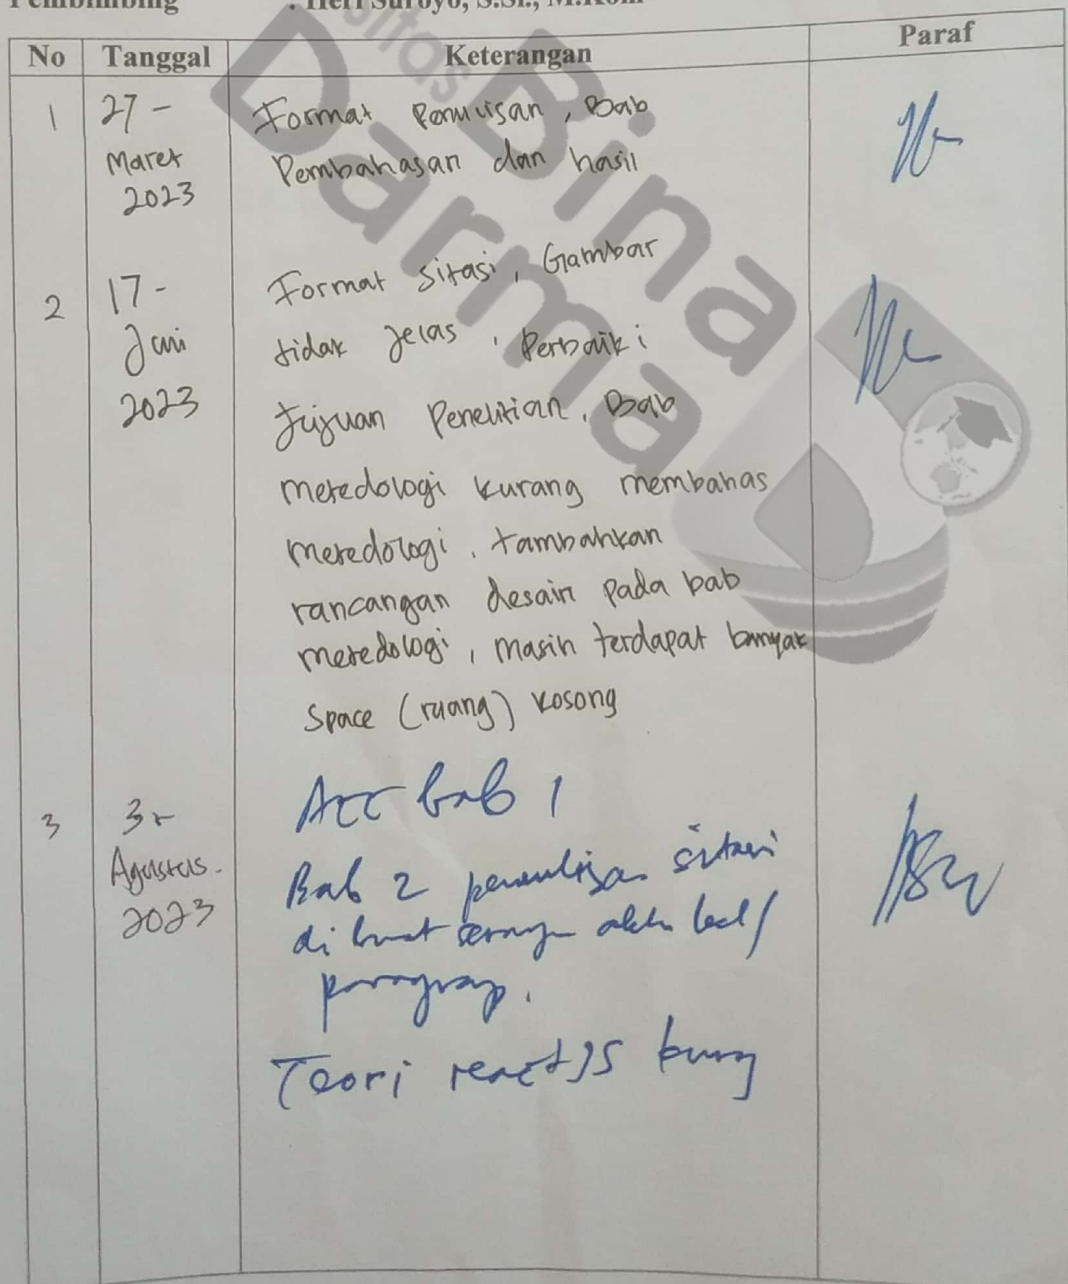 Pembimbing : Heri Suroyo, S.Si., M.Kom
No Tanggal Keterangan Paraf
1 27 - Format Penulisan, Bab
Maret Pembahasan dan hasil
2023
2 17 - Format Sitasi, Gambar
Juni tidak jelas, Perbaiki
2023 tujuan Penelitian, Bab
metedologi kurang membahas
metedologi, tambahkan
rancangan desain pada bab
metedologi, masih terdapat banyak
Space (ruang) kosong
3 Acc bab 1
Agustus. Bab 2 penulisan sitasi
2023 di buat
paragrap.
Teori react JS kurang
sitas Bina
Darma